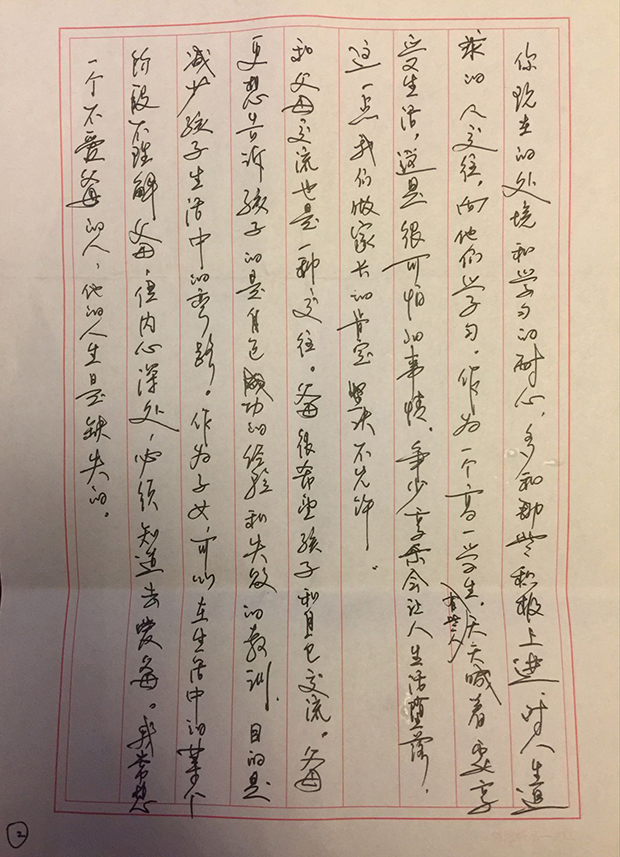 你现在的处境和学习的耐心，多和那些积极上进、对人生追
求的人交往，向他们学习。作为一个高一学生，天天喊着要享
有些人
受生活，这是很可怕的事情。年少享乐会让人生活堕落，
这一点我们做家长的肯定坚决不允许。
和父母交流也是一种交往。父母很希望孩子和自己交流。父母
更想告诉孩子的是自己成功的经验和失败的教训，目的是
减少孩子生活中的弯路。作为子女，可以在生活中的某个
阶段不理解父母，但内心深处，必须知道去爱父母。我常想
一个不爱父母的人，他的人生是缺失的。
2